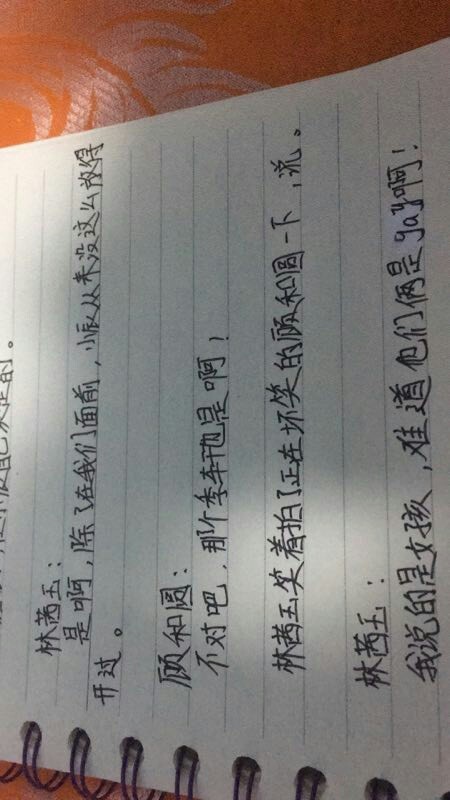 自己决定的。
林茜玉：
是啊，除了在我们面前，小辰从来没这么放得
开过。
顾和圆：
不对吧，那个季车也是啊！
林茜玉笑着拍了正在坏笑的顾和圆一下，说。
林茜玉：
我说的是女孩，难道他们俩是gay啊！